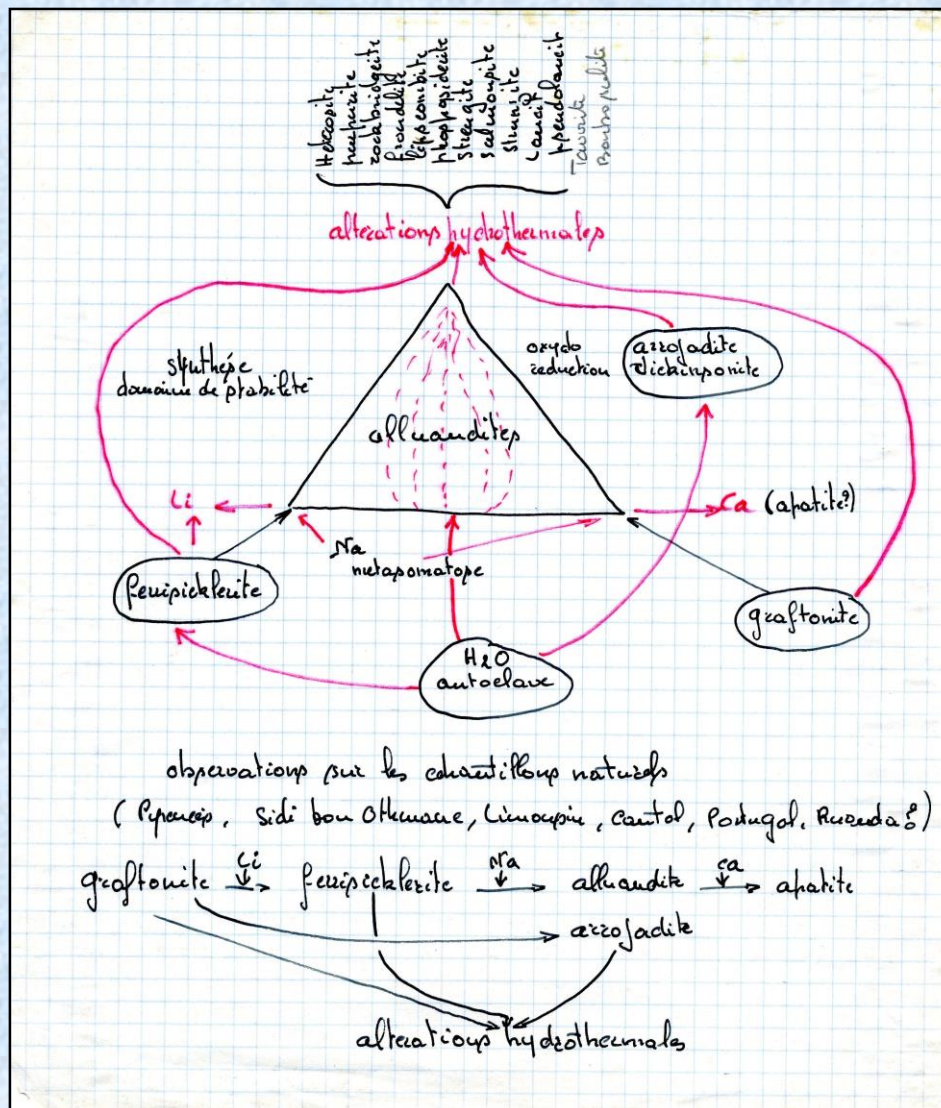 Heterosite
purpurite
rockbridgeite
frondelite
lipscombite
phosphosiderite
strengite
salmonsite
stewartite
Laueite
pseudolaueite
Tavorite
Barbosalite
altérations hydrothermales
synthèse
domaine de stabilité
oxydo
réduction
arrojadite
dickinsonite
alluaudites
Li
Ca (apatite?)
Na
métasomatose
ferrisicklerite
graftonite
H2O
autoclave
observations sur les échantillons naturels
(Pyrénées, Sidi bou Othmane, Limousin, Cantal, Portugal, Rwanda?)
graftonite Li → ferrisicklerite Na → alluaudite Ca → apatite
arrojadite
altérations hydrothermales